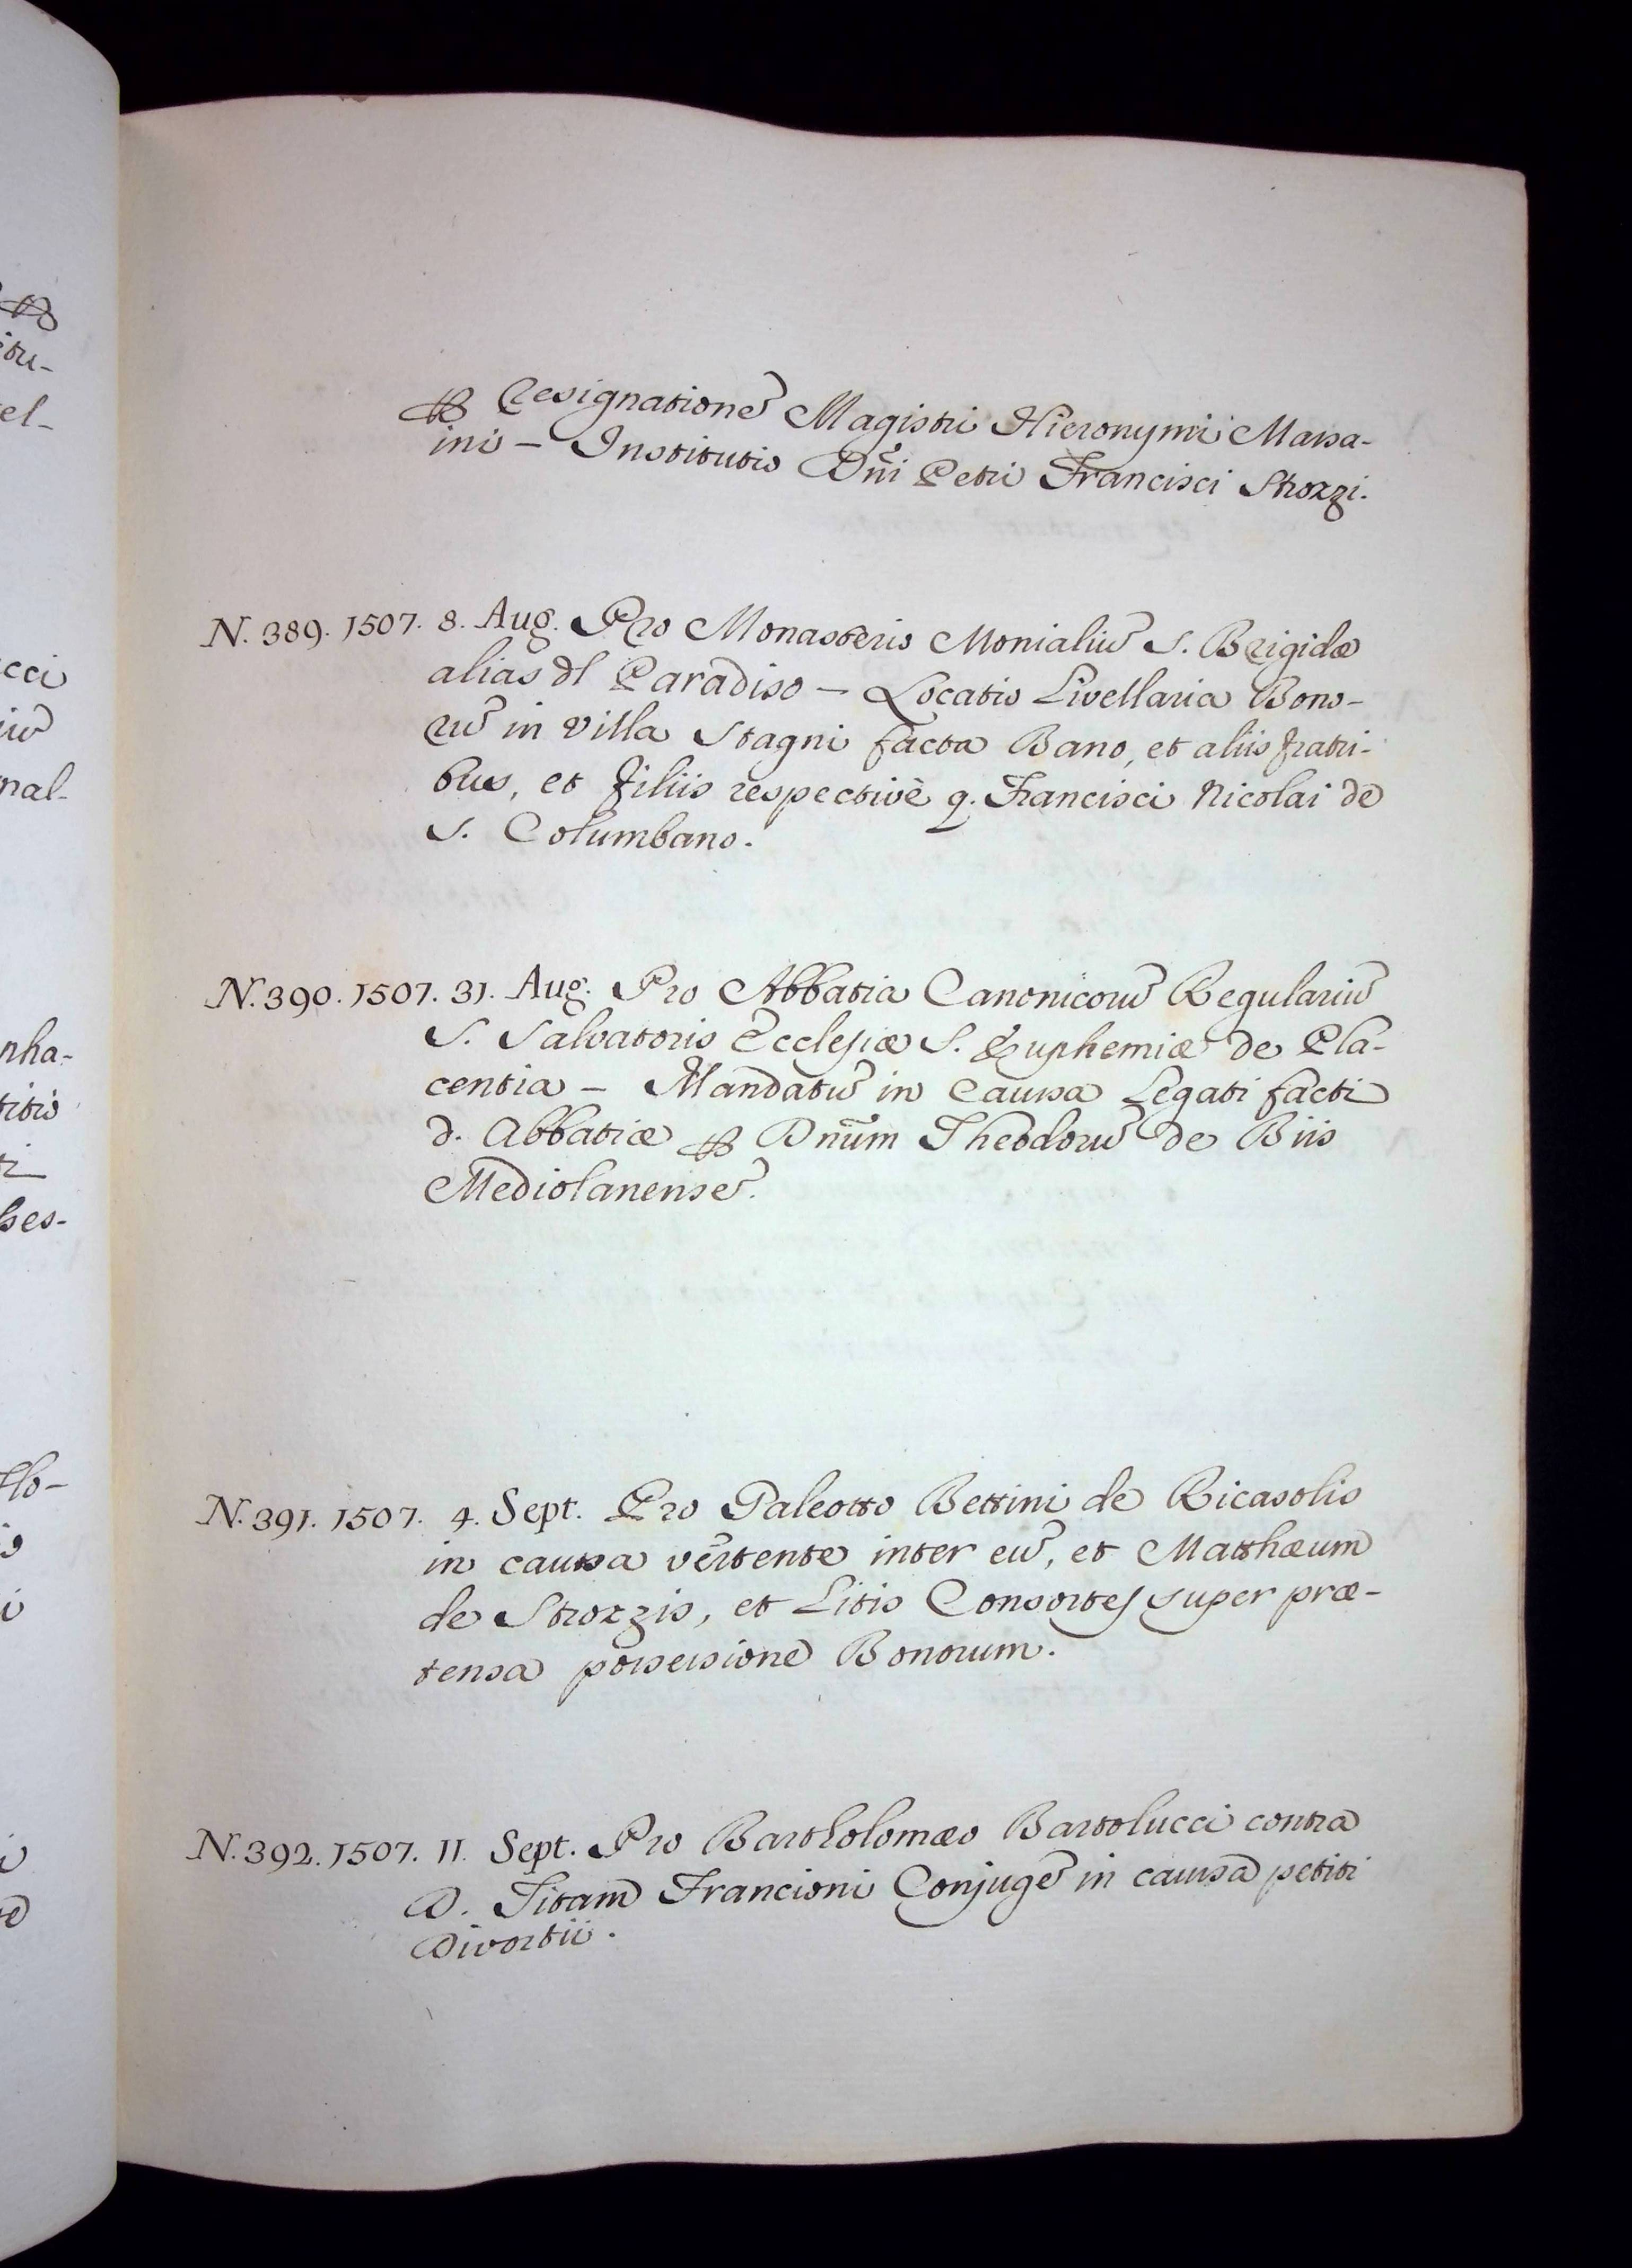 ꝑ Resignatione͂ Magistri Hieronymi Massa-
ini – Institutio Dn͂i Petri Francisci Strozzi.
N. 389. 1507. 8. Aug. Pro Monasterio Monialiu͂ S. Brigidæ
alias dl Paradiso – Locatio Livellaria Bono-
ru͂ in Villa Stagni facta Bano, et aliis fratri-
bus, et filiis respectivè q. Francisci Nicolai de
S. Columbano.
N. 390. 1507. 31. Aug. Pro Abbatia Canonicoru͂ Regulariu͂
S. Salvatoris Ecclesiæ S. Euphemiæ de Pla-
centia – Mandatu͂ in Causa Legati facti
d. Abbatiæ ꝑ Dn͂um Theodoru͂ de Biis
Mediolanense͂.
N. 391. 1507. 4. Sept. Pro Galeotto Bettini de Ricasolis
in causa vertente inter eu͂, et Matthæum
de Strozzis, et Litis Consortes super præ-
tensa possessione Bonorum.
N. 392. 1507. 11. Sept. Pro Bartholomæo Bartolucci contra
D. Titam Francioni Conjuge͂ in causa petiti
Divortii.
cci
iu͂
nal-
nha-
titio